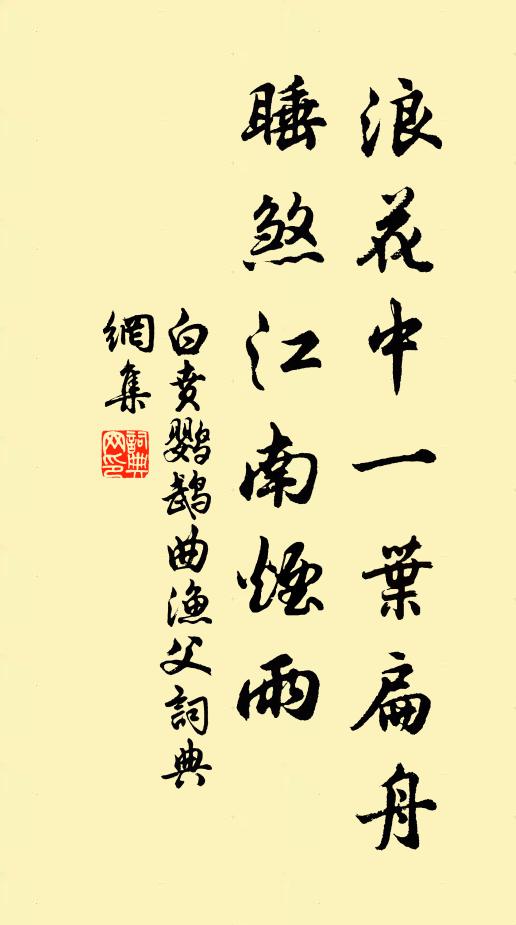 浪花中一葉扁舟
睡煞江南煙雨
白賁鸚鵡曲漁父詞典
網集
詞典
网印